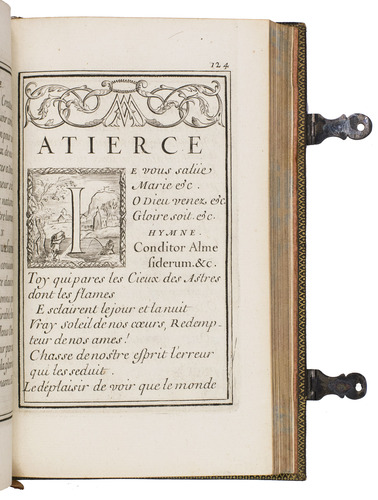 124
ATIERCE
IE vous salüe
Marie &c.
O Dieu venez &c.
Gloire soit &c.
HYMNE.
Conditor Alme
siderum. &c.
Toy qui pares les Cieux des Astres
dont les flames
Esclairent le jour et la nuit
Vray soleil de nos cœurs, Redemp-
teur de nos ames!
Chasse de nostre esprit l'erreur
qui les seduit.
Le déplaisir de voir que le monde